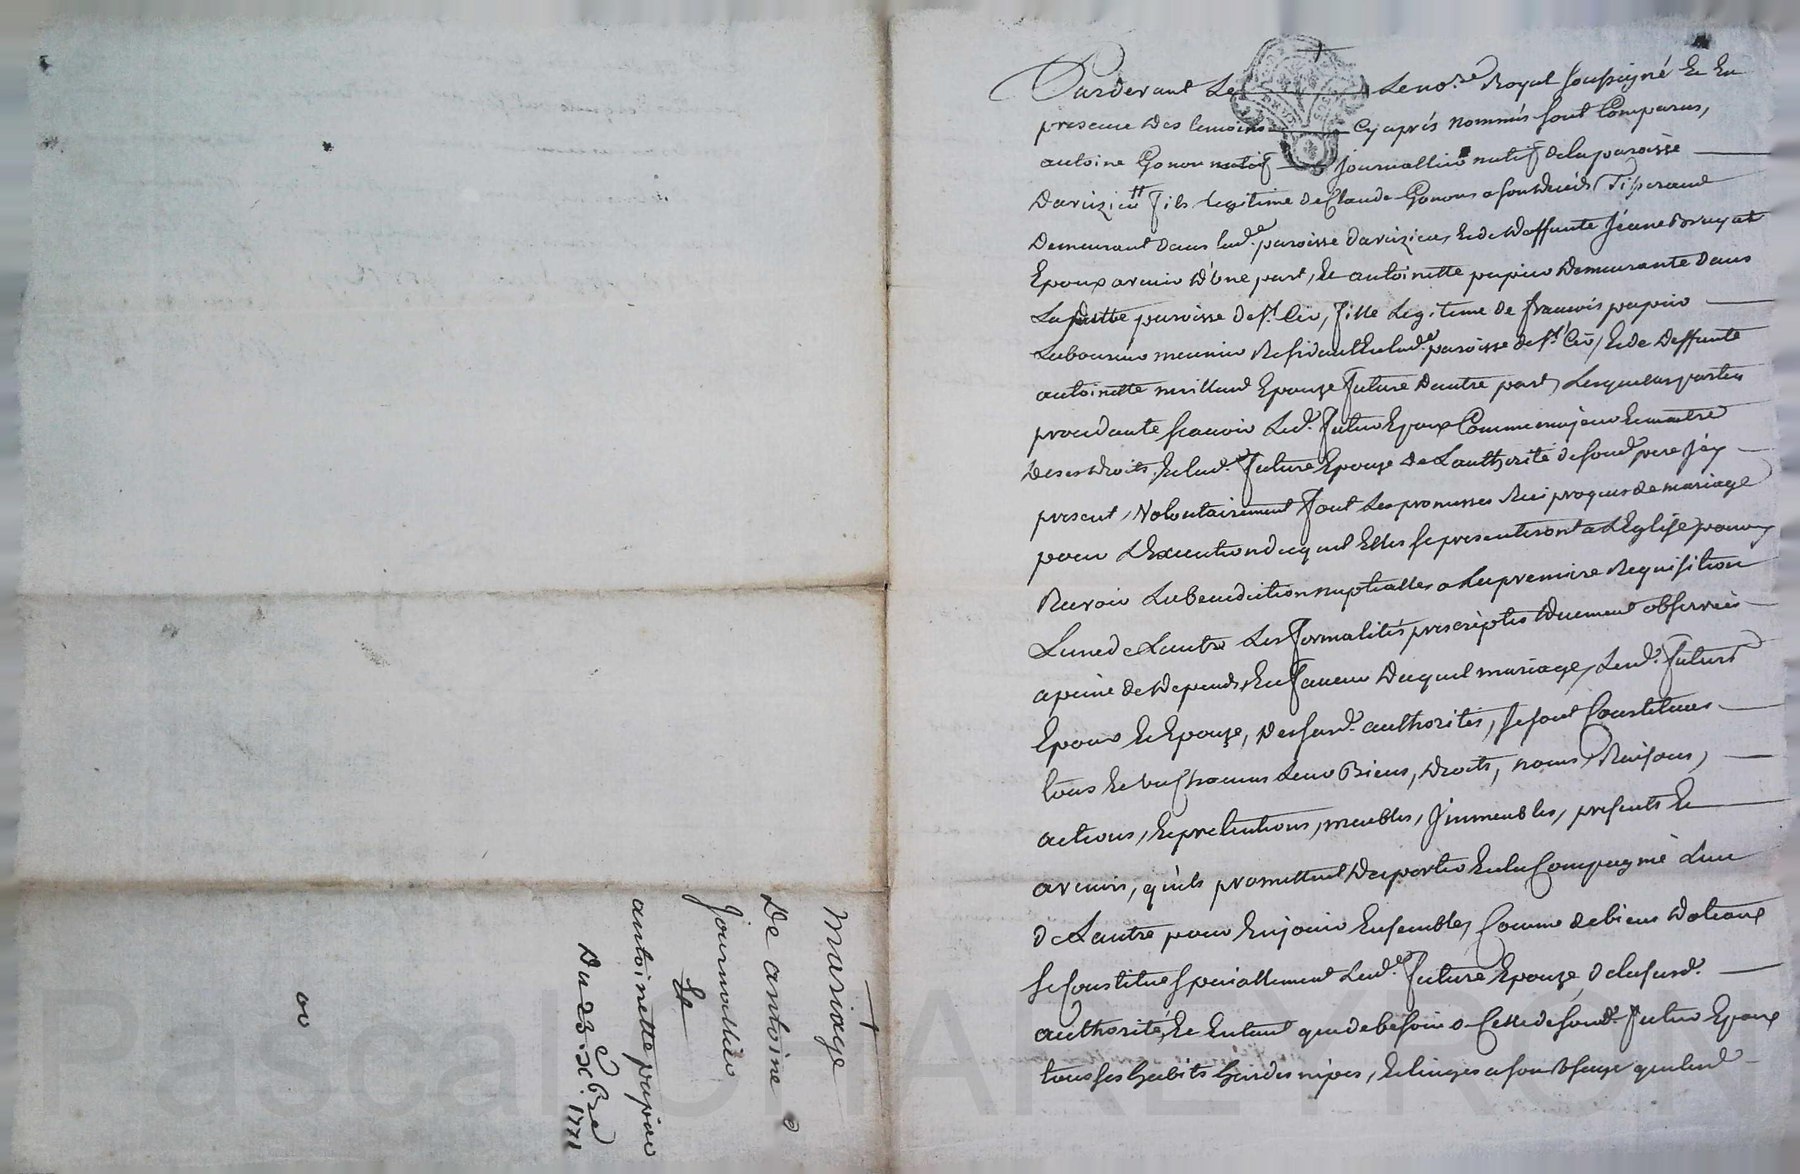 Pardevant Le Le no.re Royal soussigné Et En
presence Des temoins Cy aprés nommés sont Comparus,
antoine Gonon natif journallier natif dela paroisse
Darizieu fils legitime de Claude Gonon a son decéds Tisserand
Demeurant dans lad.e paroisse darizieu, Et de deffunte Jéane Bruyat
Epoux avenir D'une part, Et antoinette papier Demeurante dans
La paroisse de s.t Cir, fille Legitime de francois papier
Laboureur meunier Residant En lad.e paroisse de s.t Cir, Et de Deffunte
antoinette Epouze future Dautre part, Lesquelles parties
procedante scavoir Led. futur Epoux Comme majeur Et maitre
De ses droits, Et lad.e future Epouze De Lauthorité de sond. pere Jcy
present, Volontairement font Les promesses Reciproques de mariage
pour L'Execution duquel Elles se presenteront a L'Eglise pour y
Recevoir La benediction nuptialle a La premiere Requisition
Lun de Lautre Les formalités prescriptes duement observées
a peine de depends, En faveur Duquel mariage, Lesd. futurs
Epoux Et Epouze, Des susd. authorités, se sont Constitues
tous Et un chacuns Leurs Biens, droits, noms, Raisons,
actions, Et pretentions, meubles, Jmmeubles, presents Et
avenirs, qu'ils promettent De porter En la Compagnie Lun
de Lautre pour En jouir Ensembles, Comme de biens dotaux
se Constitue speciallement Lad.e future Epouze, de la susd.
authorité, Et En tant que de besoin a Celle de sond. futur Epoux
tous ses habits hardes nipes, Et linges a son Usage que led.
Mariage
De antoine
Journallier
Et
antoinette papier
Du 23. X.bre 1771